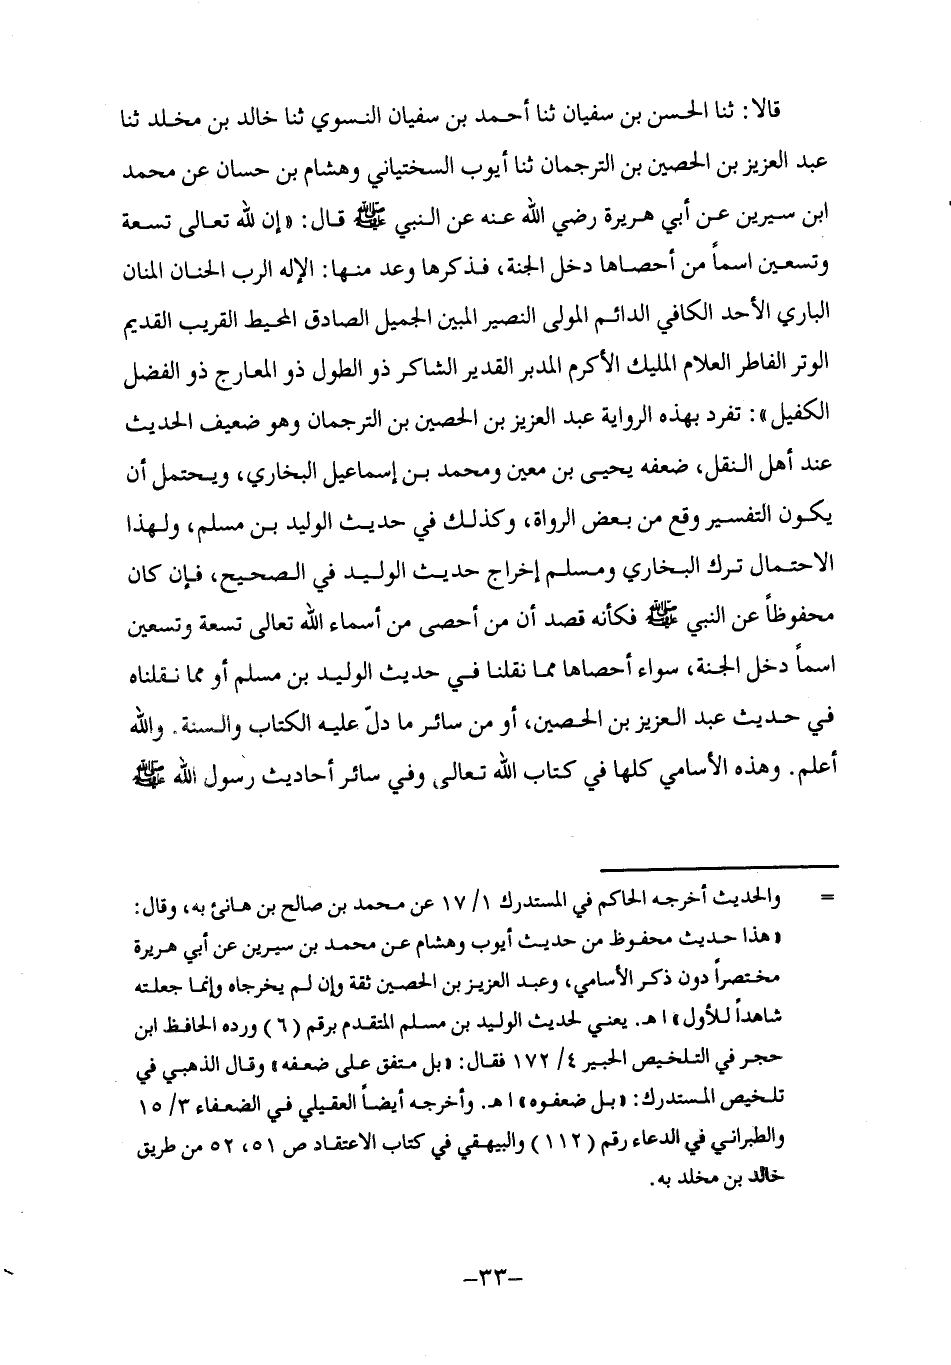 قالا: ثنا الحسن بن سفيان ثنا أحمد بن سفيان النسوي ثنا خالد بن مخلد ثنا
عبد العزيز بن الحصين بن الترجمان ثنا أيوب السختياني وهشام بن حسان عن محمد
ابن سيرين عن أبي هريرة رضي الله عنه عن النبي ﷺ قال: «إن لله تعالى تسعة
وتسعين اسماً من أحصاها دخل الجنة، فذكرها وعد منها: الإله الرب الحنان المنان
الباري الأحد الكافي الدائم المولى النصير المبين الجميل الصادق المحيط القريب القديم
الوتر الفاطر العلام المليك الأكرم المدبر القدير الشاكر ذو الطول ذو المعارج ذو الفضل
الكفيل»: تفرد بهذه الرواية عبد العزيز بن الحصين بن الترجمان وهو ضعيف الحديث
عند أهل النقل، ضعفه يحيى بن معين ومحمد بن إسماعيل البخاري، ويحتمل أن
يكون التفسير وقع من بعض الرواة، وكذلك في حديث الوليد بن مسلم، ولهذا
الاحتمال ترك البخاري ومسلم إخراج حديث الوليد في الصحيح، فإن كان
محفوظاً عن النبي ﷺ فكأنه قصد أن من أحصى من أسماء الله تعالى تسعة وتسعين
اسماً دخل الجنة، سواء أحصاها مما نقلنا في حديث الوليد بن مسلم أو مما نقلناه
في حديث عبد العزيز بن الحصين، أو من سائر ما دلّ عليه الكتاب والسنة. والله
أعلم. وهذه الأسامي كلها في كتاب الله تعالى وفي سائر أحاديث رسول الله ﷺ
= والحديث أخرجه الحاكم في المستدرك ١/ ١٧ عن محمد بن صالح بن هانئ به، وقال:
«هذا حديث محفوظ من حديث أيوب وهشام عن محمد بن سيرين عن أبي هريرة
مختصراً دون ذكر الأسامي، وعبد العزيز بن الحصين ثقة وإن لم يخرجاه وإنما جعلته
شاهداً للأول» ا هـ. يعني لحديث الوليد بن مسلم المتقدم برقم (٦) ورده الحافظ ابن
حجر في التلخيص الحبير ٤/ ١٧٢ فقال: «بل متفق على ضعفه» وقال الذهبي في
تلخيص المستدرك: «بل ضعفوه» ا هـ. وأخرجه أيضاً العقيلي في الضعفاء ٣/ ١٥
والطبراني في الدعاء رقم (١١٢) والبيهقي في كتاب الاعتقاد ص ٥١، ٥٢ من طريق
خالد بن مخلد به.
-٣٣-